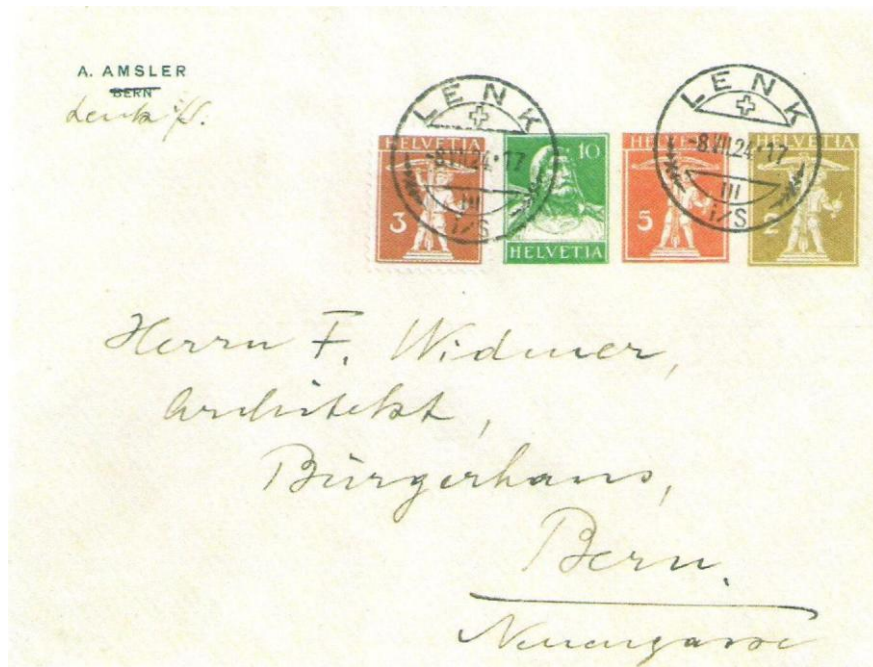 A. AMSLER
BERN
Lenk i/S.
LENK
-8.VII.24·17
III
i/S
LENK
-8.VII.24·17
III
i/S
HELVETIA
3
10
HELVETIA
HELVE
5
HELVETIA
2
Herrn F. Widmer,
Architekt,
Bürgerhaus,
Bern.
Neuengasse